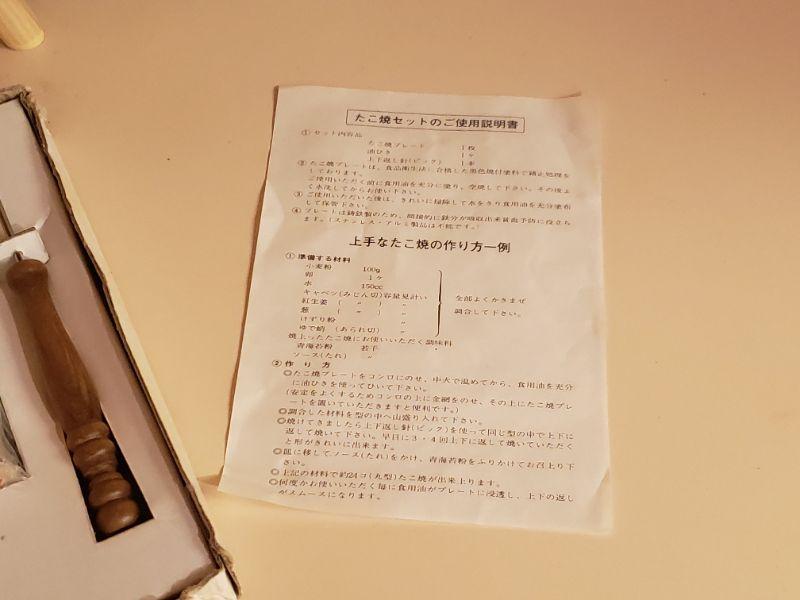 たこ焼セットのご使用説明書
① セット内容品
たこ焼プレート 1枚
油ひき 1ヶ
上下返し針(ピック) 1本
② たこ焼プレートは、食品衛生法に合格した黒色焼付塗料で錆止処理をしております。
ご使用いただく前に食用油を充分に塗り、空焼して下さい。その後よく水洗してからお使い下さい。
③ ご使用いただいた後は、きれいに掃除して水をきり食用油を充分塗布して保管下さい。
④ プレートは鋳鉄製のため、間接的に鉄分が吸収出来貧血予防に役立ちます。(ステンレス・アルミ製品は不能です。)
上手なたこ焼の作り方一例
① 準備する材料
小麦粉 100g
卵 1ヶ
水 150cc
キャベツ(みじん切)容量見計い
紅生姜 ( 〃 ) 〃
葱 ( 〃 ) 〃
けずり粉 〃
ゆで蛸 (あられ切) 〃
全部よくかきまぜ
調合して下さい。
焼上ったたこ焼にお使いいただく調味料
青海苔粉 若干
ソース(たれ) 〃
② 作り方
◎たこ焼プレートをコンロにのせ、中火で温めてから、食用油を充分
に油ひきを使ってひいて下さい。
(安定をよくするためコンロの上に金網をのせ、その上にたこ焼プレ
ートを置いていただきますと便利です。)
◎調合した材料を型の中へ山盛り入れて下さい。
◎焼けてきましたら上下返し針(ピック)を使って同じ型の中で上下に
返して焼いて下さい。早目に3・4回上下に返して焼いていただく
と形がきれいに出来ます。
◎皿に移してソース(たれ)をかけ、青海苔粉をふりかけてお召上り下
さい。
◎上記の材料で約24コ(丸型)たこ焼が出来上ります。
◎何度かお使いいただく毎に食用油がプレートに浸透し、上下の返し
がスムースになります。